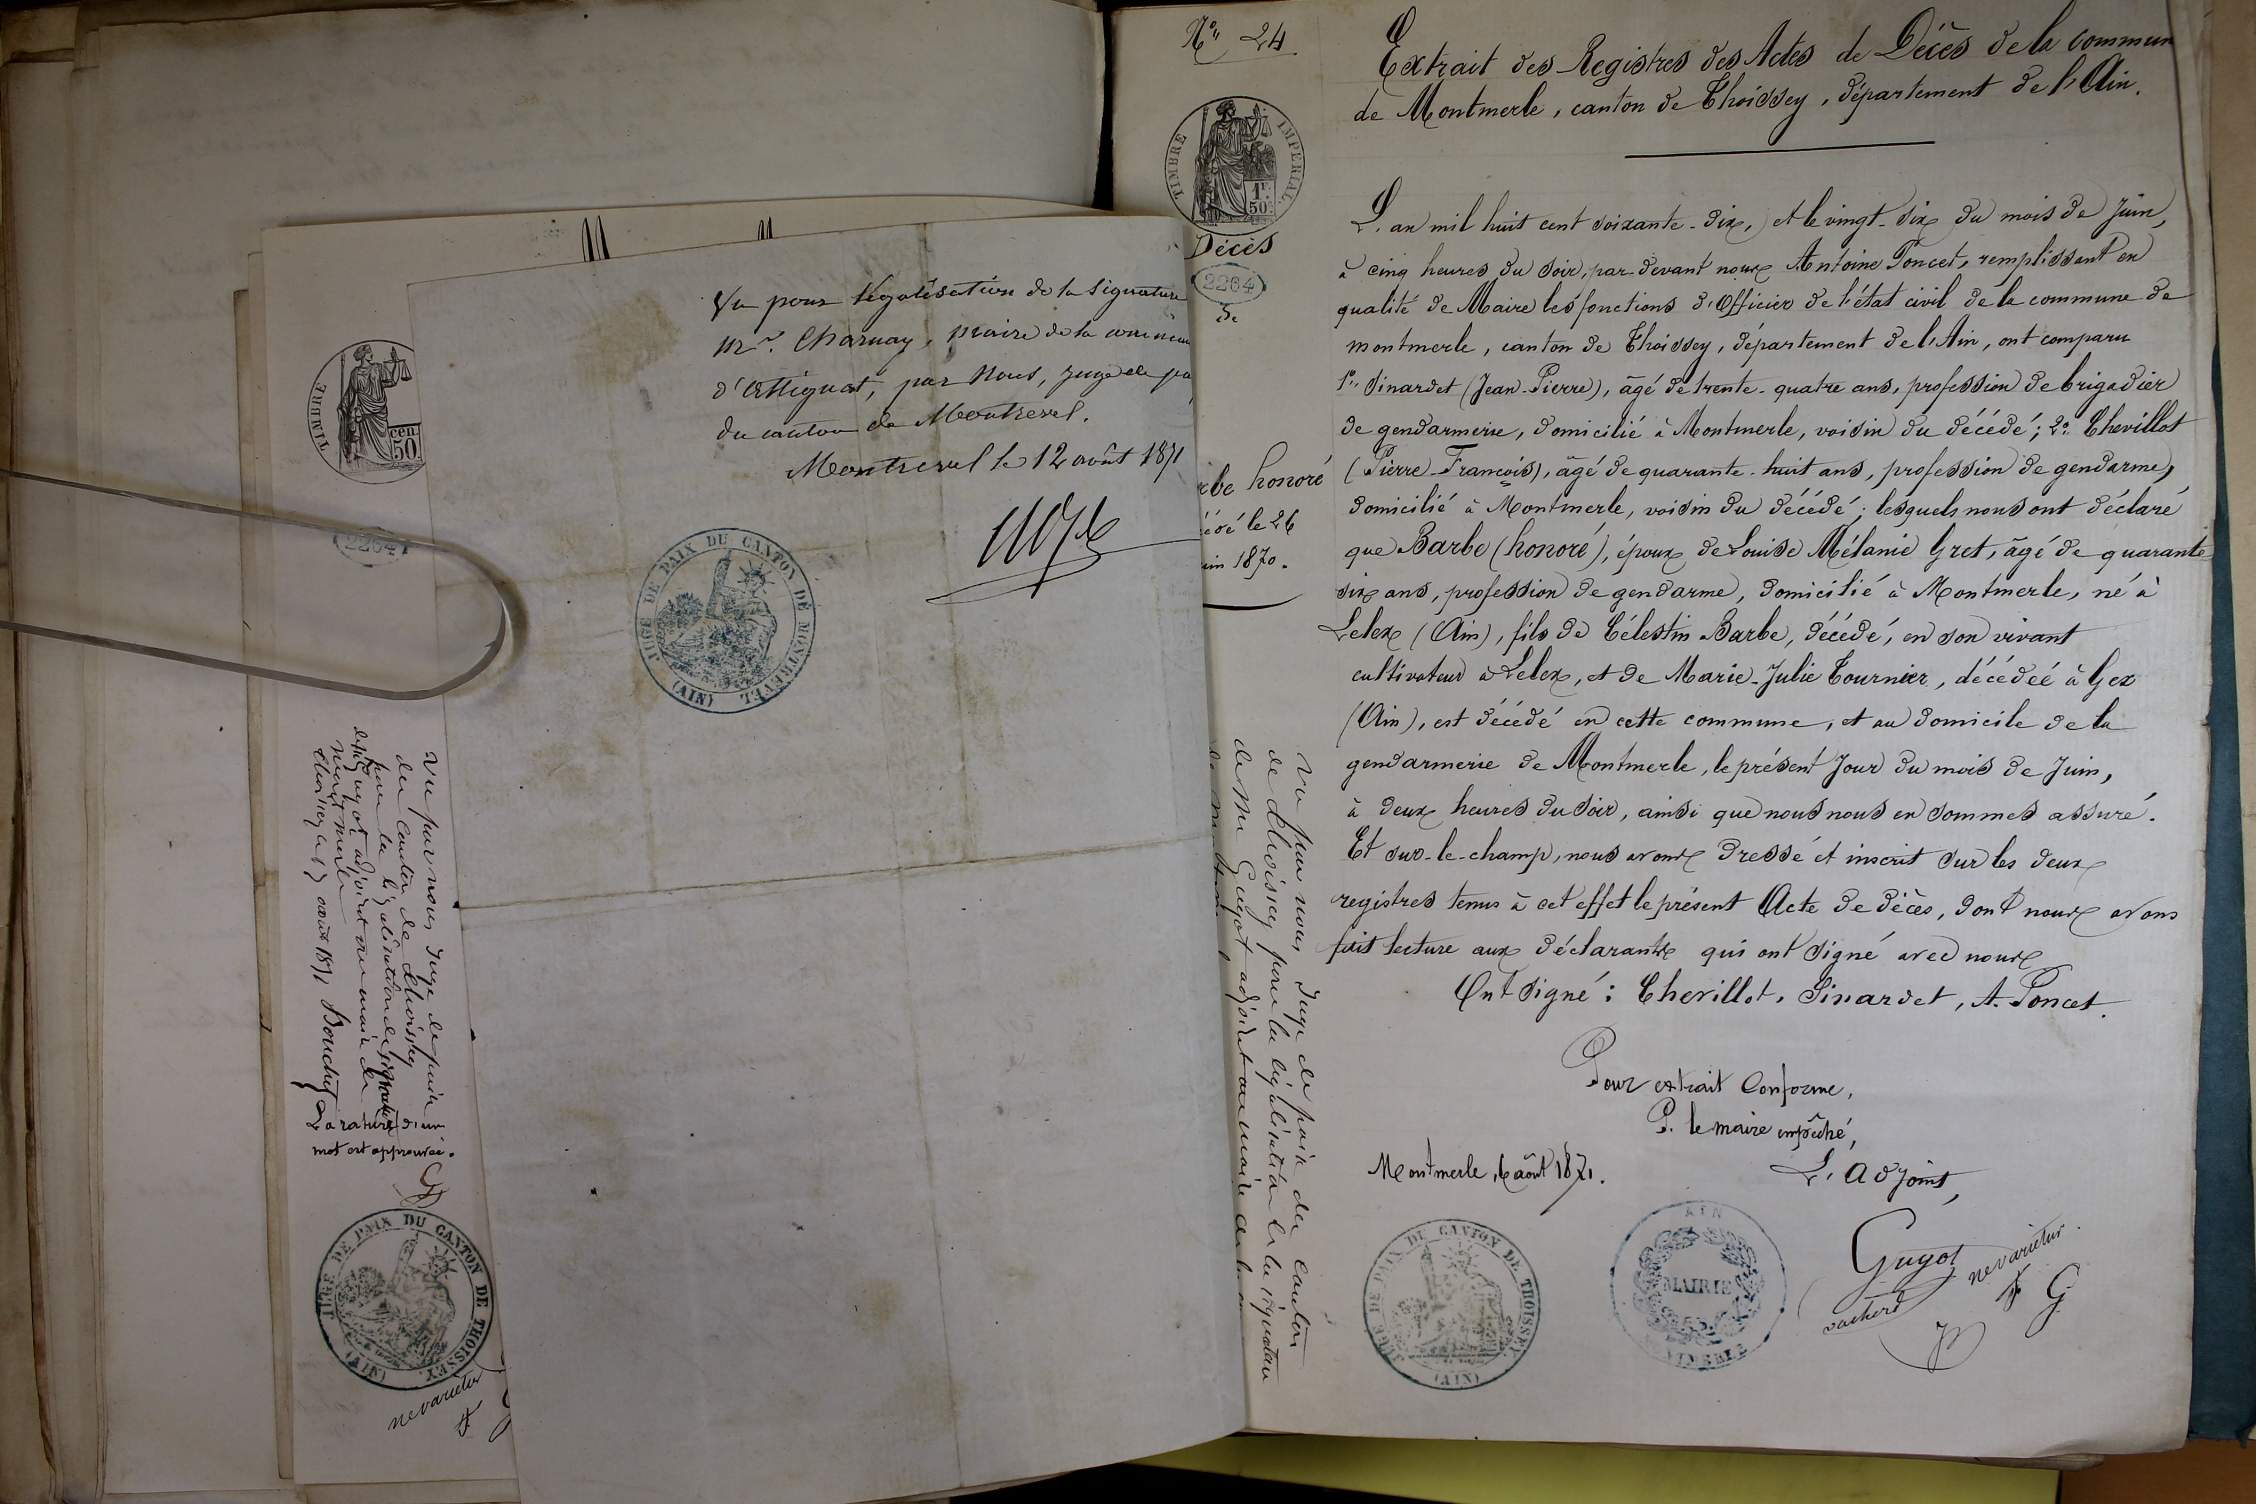 Vu pour légalisation de la signature
Mr. Charnay, Maire de la commune
d'Attignat, par Nous, Juge de pa
du canton de Montrevel.
Montrevel le 12 août 1871
JUGE DE PAIX DU CANTON DE MONTREVEL
(AIN)
TIMBRE
cen.
50.
2264
Vu par nous Juge de paix
du Canton de Thoissey
pour la légalisation de signature
de Mr Guyot adjoint au maire de
Montmerle
Thoissey le 17 août 1871 Bouchy
La rature d'un
mot est approuvée.
JUGE DE PAIX DU CANTON DE THOISSEY.
(AIN)
ne varietur
No. 24
TIMBRE IMPERIAL.
1F.
50c.
Décès
2264
De
rbe honoré
édé le 26
uin 1870.
Vu par nous Juge de paix du Canton
de Thoissey pour la légalisation de la signature
de Mr Guyot adjoint au maire de la
Extrait des Registres des Actes de Décès de la commun
de Montmerle, canton de Thoissey, département de l'Ain.
L'an mil huit cent soixante-dix, et le vingt-six du mois de Juin,
à cinq heures du soir, par-devant nous Antoine Poncet, remplissant en
qualité de Maire les fonctions d'Officier de l'état civil de la commune de
Montmerle, canton de Thoissey, département de l'Ain, ont comparu
1o. Sinardet (Jean-Pierre), âgé de trente-quatre ans, profession de brigadier
de gendarmerie, domicilié à Montmerle, voisin du décédé; 2o. Chevillot
(Pierre-François), âgé de quarante-huit ans, profession de gendarme,
domicilié à Montmerle, voisin du décédé; lesquels nous ont déclaré
que Barbe (honoré), époux de Louise Mélanie Gret, âgé de quarante
six ans, profession de gendarme, domicilié à Montmerle, né à
Lelex (Ain), fils de Célestin Barbe, décédé, en son vivant
cultivateur à Lelex, et de Marie-Julie Tournier, décédée à Gex
(Ain), est décédé en cette commune, et au domicile de la
gendarmerie de Montmerle, le présent Jour du mois de Juin,
à deux heures du soir, ainsi que nous nous en sommes assuré.
Et sur-le-champ, nous avons dressé et inscrit sur les deux
registres tenus à cet effet le présent Acte de décès, dont nous avons
fait lecture aux déclarants qui ont signé avec nous
Ont signé: Chevillot, Sinardet, A. Poncet.
Pour extrait Conforme,
P. le maire empêché,
Montmerle, 6 août 1871.
L'Adjoint,
Guyot
ne varietur
G
JUGE DE PAIX DU CANTON DE THOISSEY.
(AIN)
AIN
MAIRIE